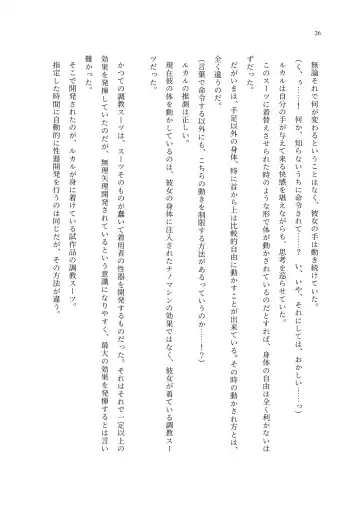 26
無論それで何が変わるということはなく、彼女の手は動き続けていた。
（く、ぅ……！　何か、知らないうちに命令されて……？　い、いや、それにしては、おかしい……っ）
ルカルは自分の手が与えて来る快感を堪えながらも、思考を巡らせていた。
このスーツに着替えさせられた時のような形で体が動かされているのだとすれば、身体の自由は全く利かないは
ずだった。
だがいまは、手足以外の身体、特に首から上は比較的自由に動かすことが出来ている。その時の動かされ方とは、
全く違うのだ。
（言葉で命令する以外にも、こちらの動きを制限する方法があるっていうのか……！？）
ルカルの推測は正しい。
現在彼女の体を動かしているのは、彼女の身体に注入されたナノマシンの効果ではなく、彼女が着ている調教スー
ツだった。
かつての調教スーツは、スーツそのものが蠢いて着用者の性器を開発するものだった。それはそれで一定以上の
効果を発揮していたのだが、無理矢理開発されているという意識になりやすく、最大の効果を発揮するとは言い
難かった。
そこで開発されたのが、ルカルが身に着けている試作品の調教スーツ。
指定した時間に自動的に性器開発を行うのは同じだが、その方法が違う。